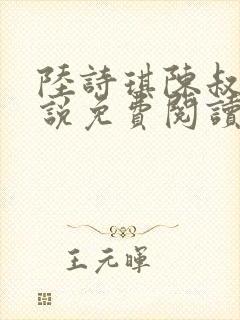 陸詩琪陳叔
說免費閱讀
王元暉